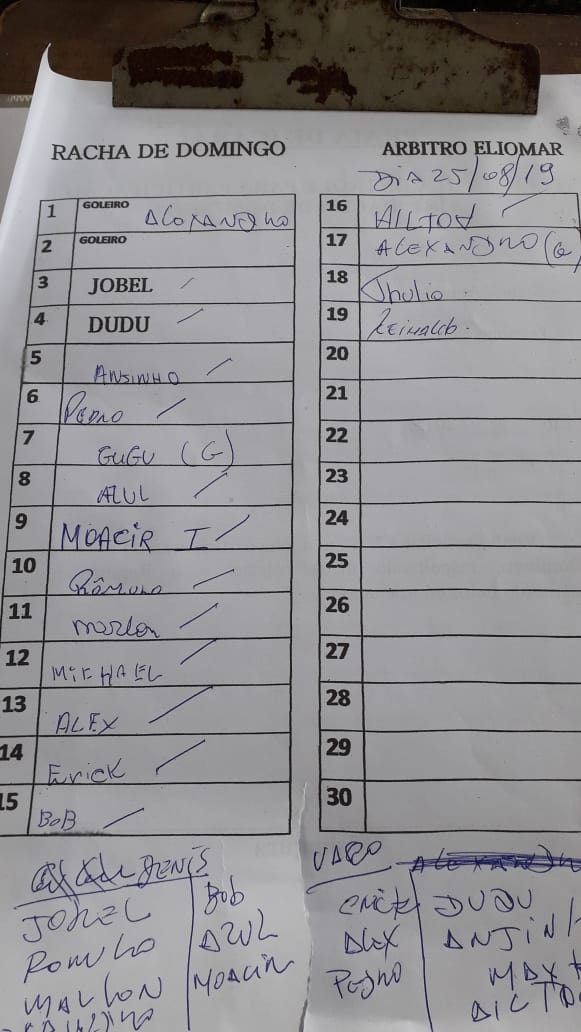 RACHA DE DOMINGO
ARBITRO ELIOMAR
DIA 25/08/19
1 GOLEIRO ALEXANDNO
2 GOLEIRO
3 JOBEL
4 DUDU
5 ANSINHO
6 PEDRO
7 GUGU (G)
8 AZUL
9 MOACIR I
10 RÔMULO
11 marlon
12 MICHAEL
13 ALEX
14 Erick
15 BOB
16 AILTON
17 ALEXANDNO (G)
18 Jhulio
19 REINALDO.
20
21
22
23
24
25
26
27
28
29
30
DENIS
JOBEL
ROMULO
MARLON
Bob
AZUL
MOACIR
VARO
erick
Alex
Pedro
DUDU
ANJINH